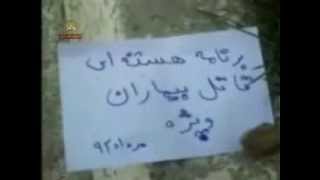 برنامه هسته ای
قاتل بیماران
ویژه
مرداد ۹۲